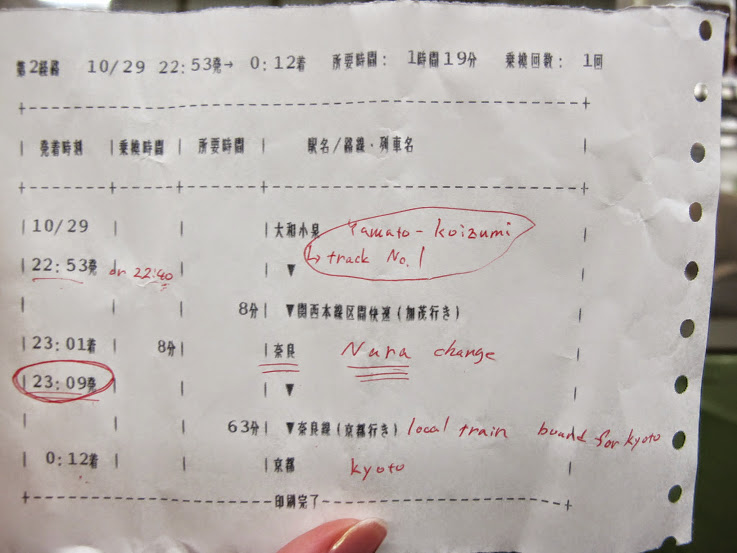 第2経路 10/29 22:53発→ 0:12着 所要時間: 1時間19分 乗換回数: 1回
+------------------------------------------------------------+
| 発着時刻 | 乗換時間 | 所要時間 | 駅名/路線・列車名 |
+------------------------------------------------------------+
|10/29 | | |大和小泉 Yamato-koizumi
|22:53発 or 22:40 ▼ ↳ track No.1
| | 8分| ▼関西本線区間快速(加茂行き) |
|23:01着 | 8分| |奈良 Nara change
|23:09発 | | | ▼ |
| | 63分| ▼奈良線(京都行き) local train bound for kyoto
| 0:12着 | | |京都 kyoto |
+------------------------印刷完了------------------------+